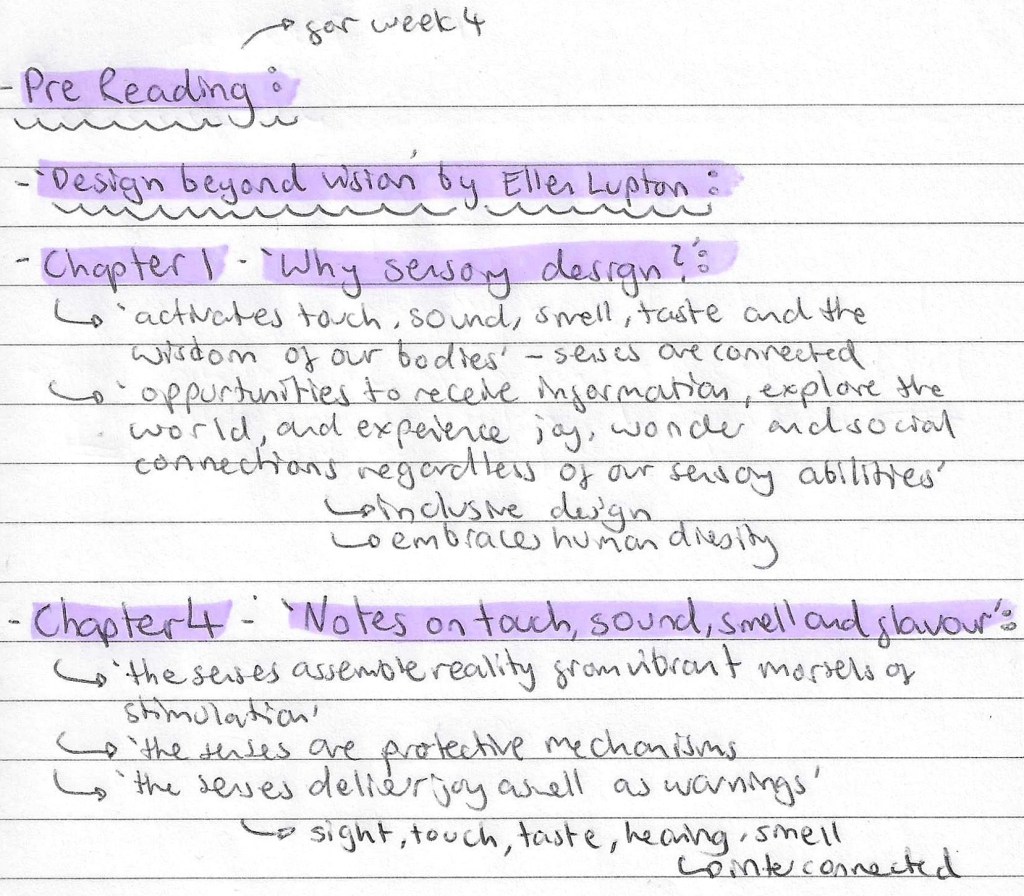 → for week 4
- Pre Reading :
- 'Design beyond vision' by Ellen Lupton :
- Chapter 1 - 'Why sensory design?':
↳ 'activates touch, sound, smell, taste and the
wisdom of our bodies' – senses are connected
↳ 'oppurtunities to receive information, explore the
world, and experience joy, wonder and social
connections regardless of our sensory abilities'
↳ inclusive design
↳ embraces human diesity
- Chapter 4 - 'Notes on touch, sound, smell and flavour':
↳ 'the senses assemble reality from vibrant morsels of
stimulation'
↳ 'the senses are protective mechanisms
↳ 'the senses deliver joy aswell as warnings'
↳ sight, touch, taste, hearing, smell
↳ interconnected